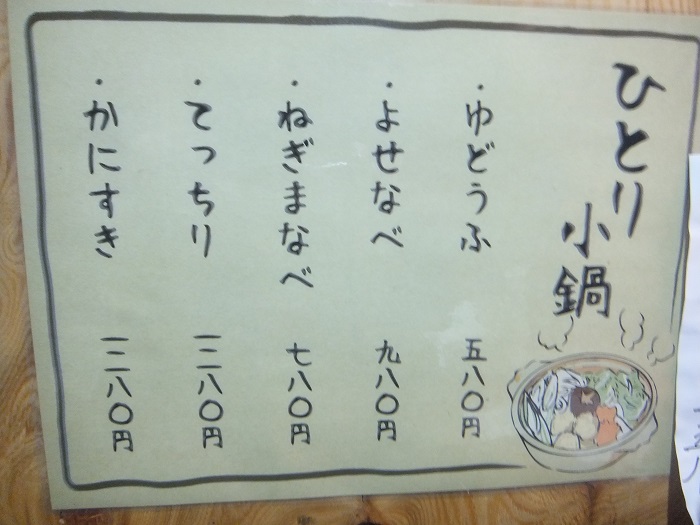 ひとり
小鍋
・ゆどうふ 五八〇円
・よせなべ 九八〇円
・ねぎまなべ 七八〇円
・てっちり 一二八〇円
・かにすき 一二八〇円